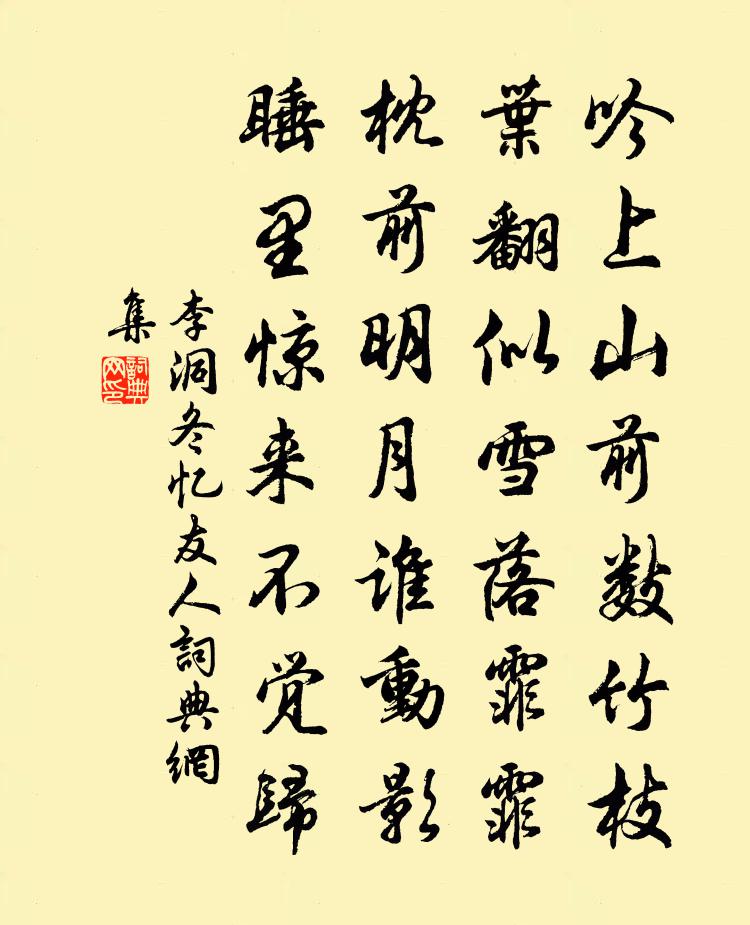 吟上山前数竹枝
葉翻似雪落霏霏
枕前明月谁動影
睡里惊来不觉歸
李洞冬忆友人詞典網
集
詞典
网印